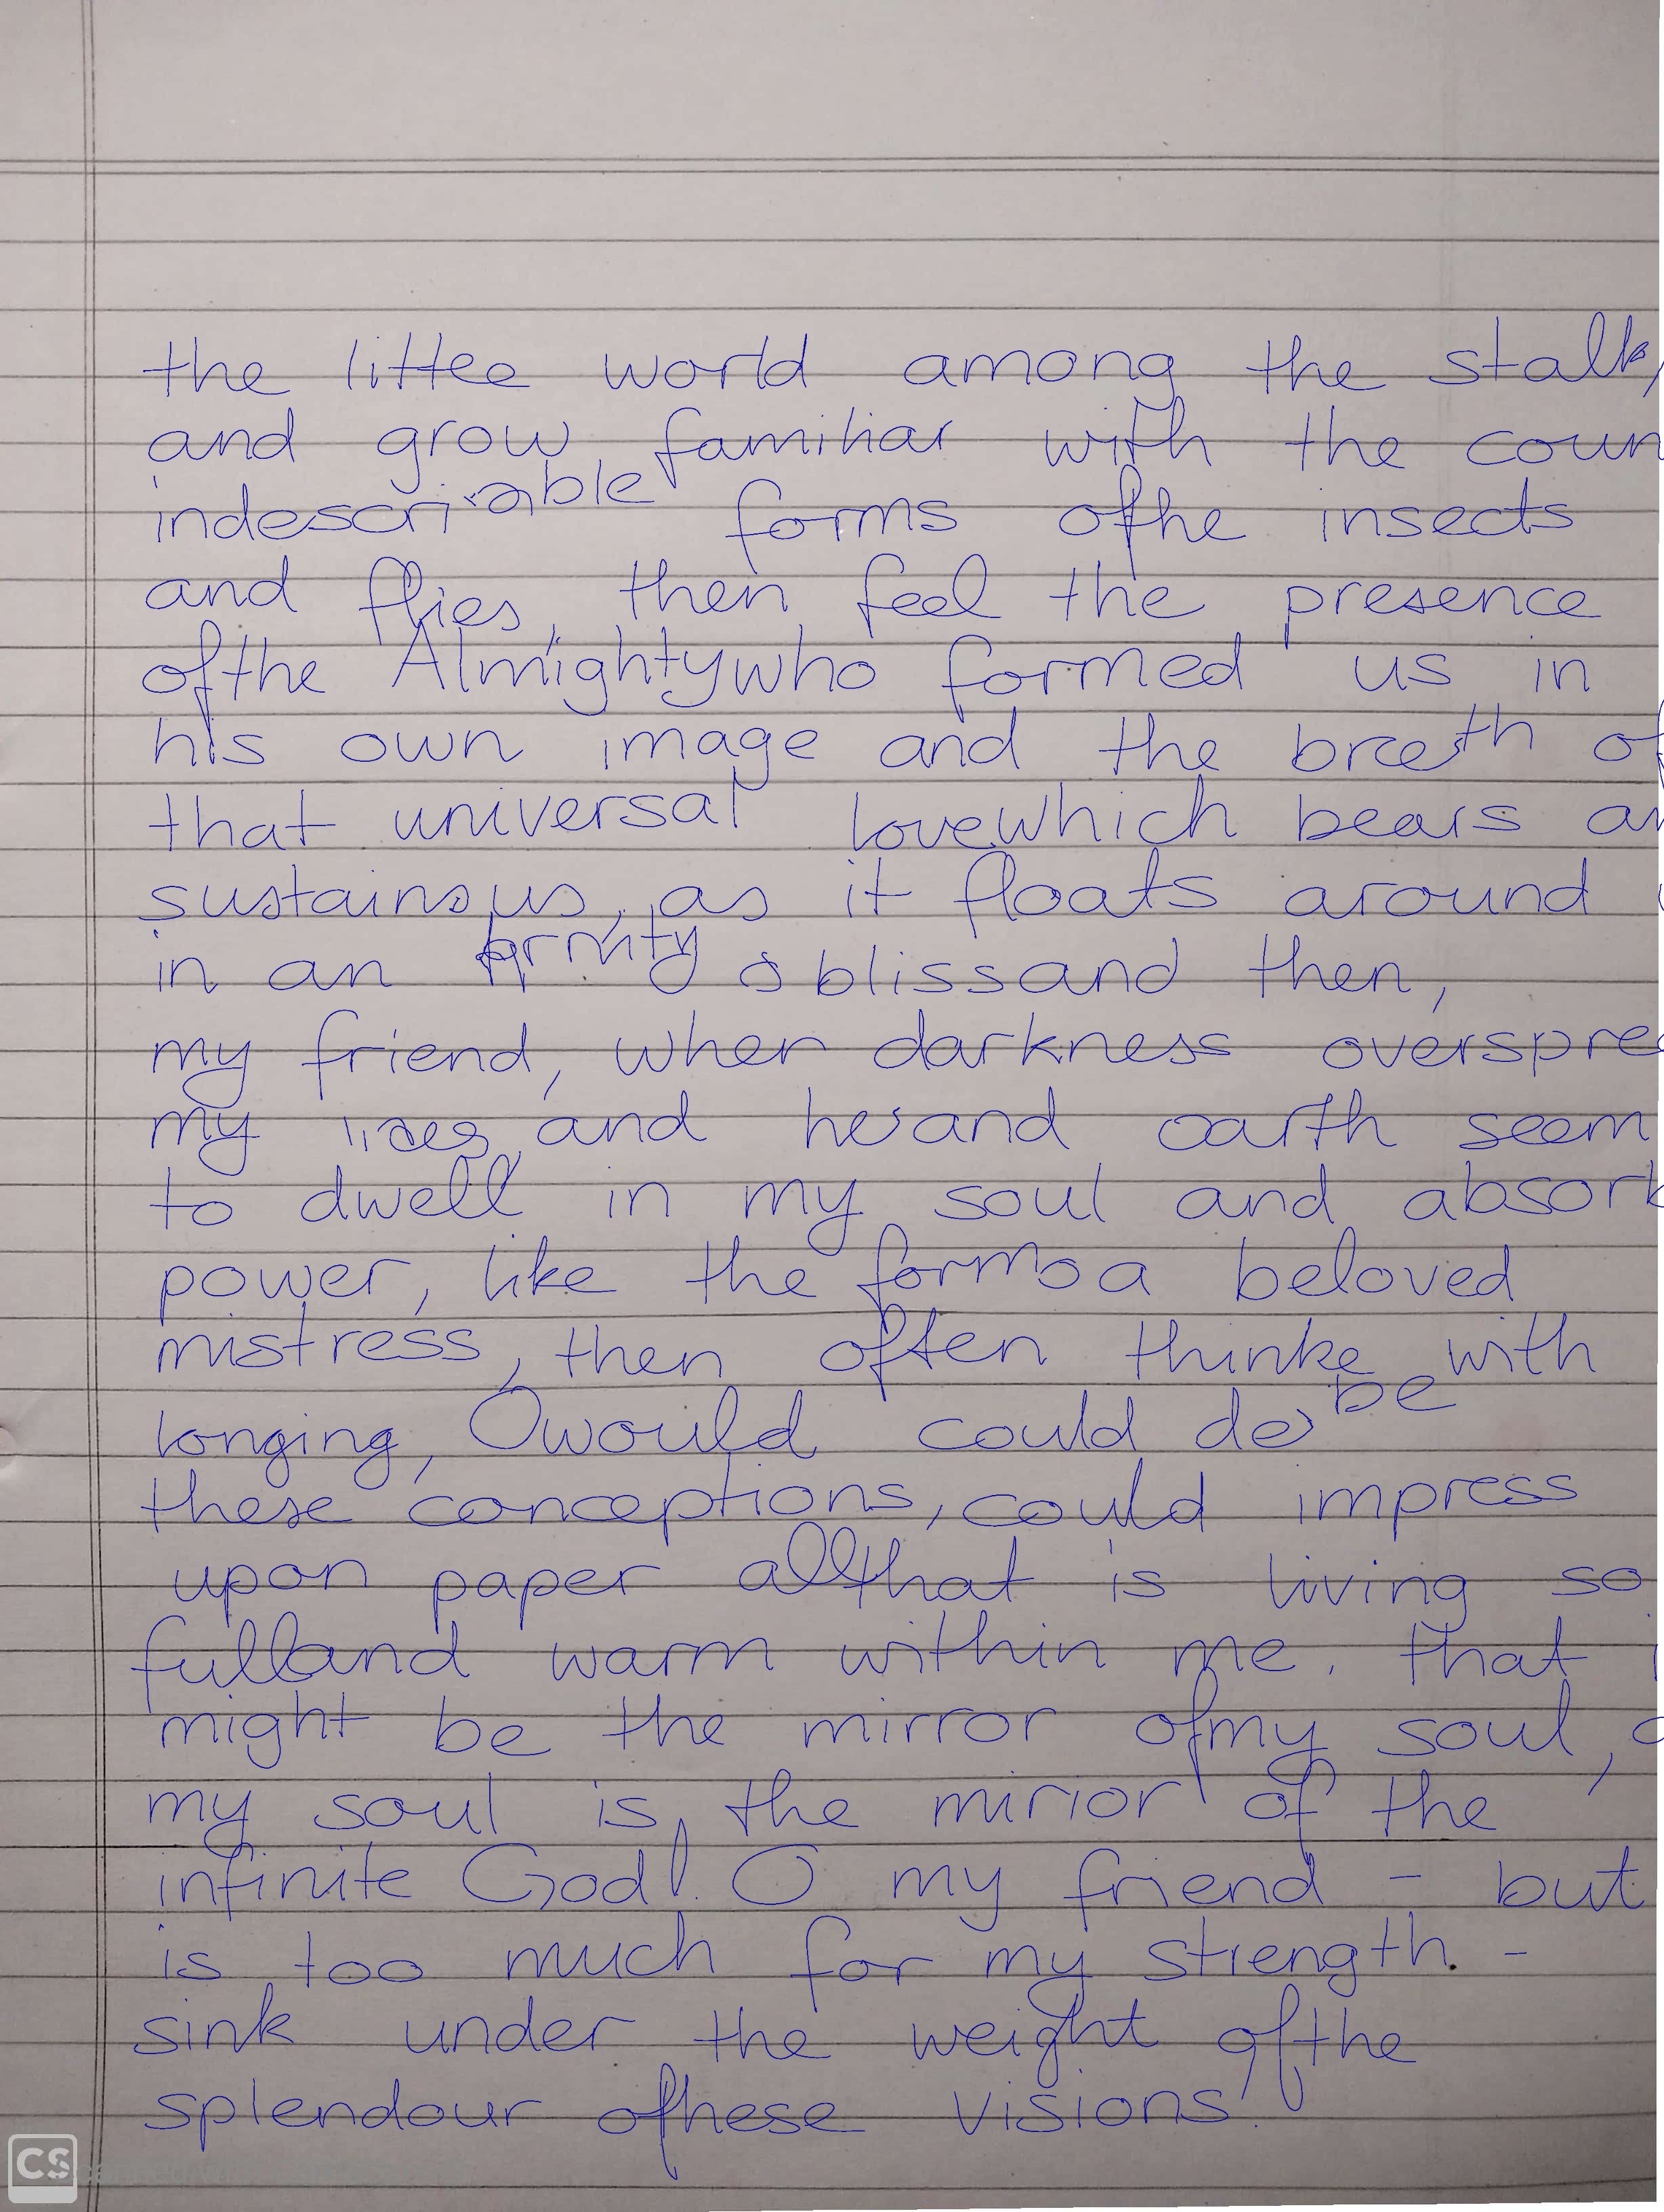 the little world among the stalk,
and grow familiar with the coun
indescriable forms ofhe insects
and flies, then feel the presence
ofthe Almightywho formed us in
his own image and the breath of
that universal lovewhich bears an
sustainsus, as it floats around
in an blissand then,
my friend, when darkness overspre
my and earth seem
to dwell in my soul and absorb
power, like the form a beloved
mistress, then often thinke with
longing, Owould could be
these conceptions, could impress
upon paper allthat is living so
fulland warm within me. that i
might be the mirror ofmy soul,
my soul is the mirror of the
infinite God! O my friend - but
is too much for my strength. -
sink under the weight ofthe
splendour ofhese visions!
CS